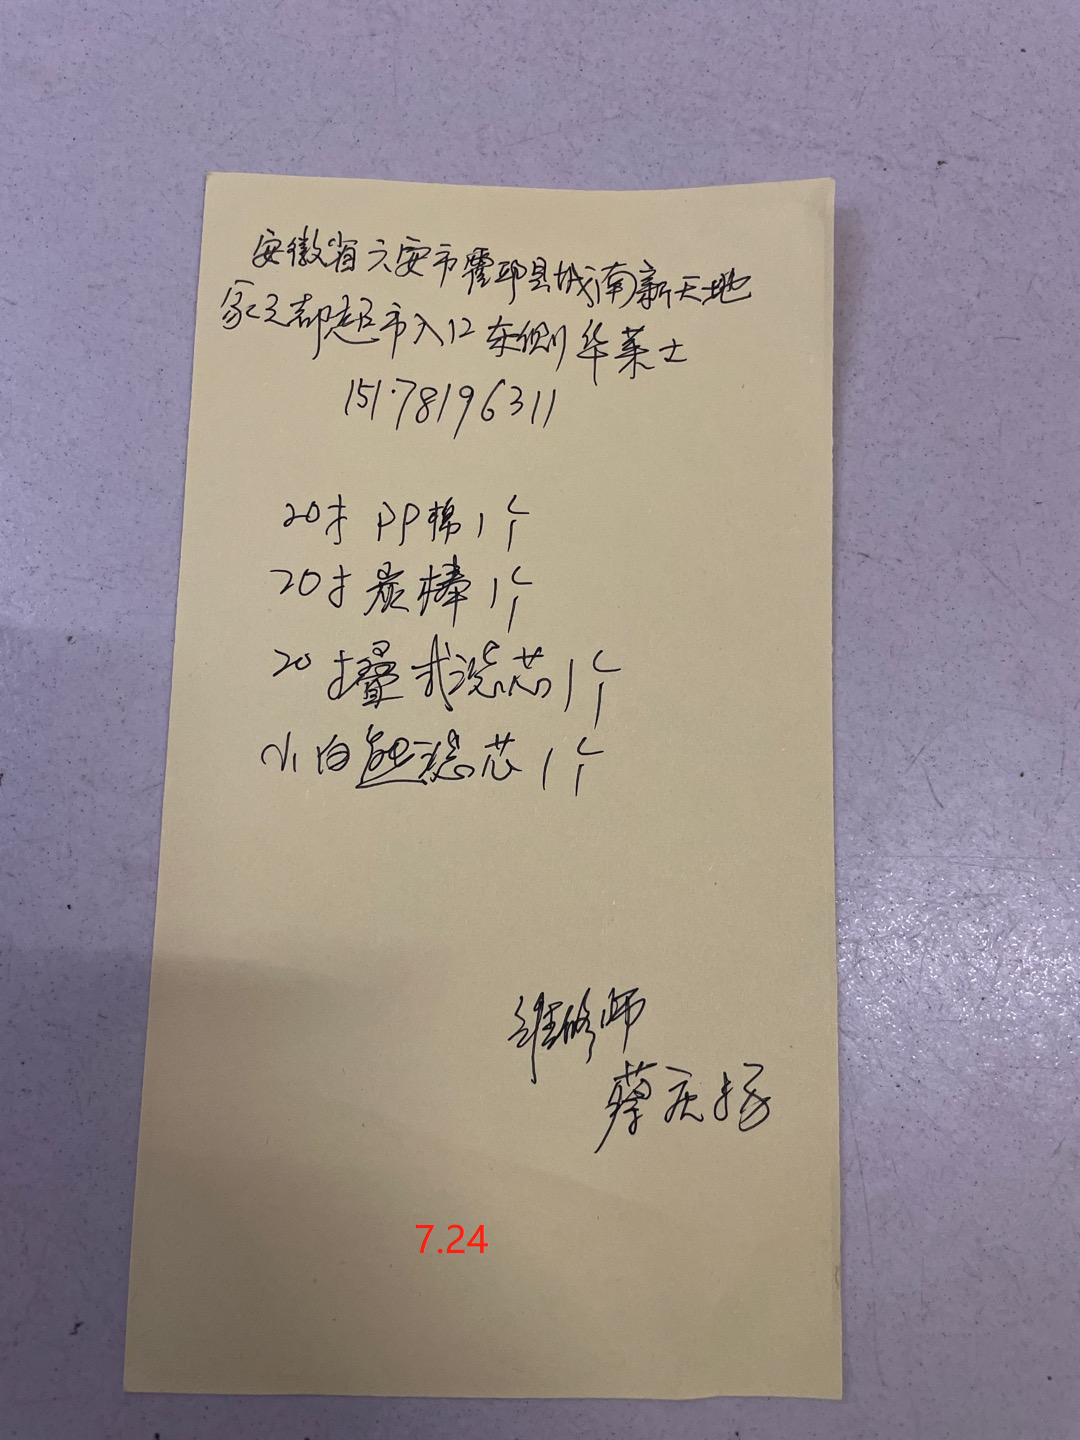 安徽省六安市霍邱县城南新天地
家之都超市入口东侧华莱士
151·78196311
20寸 PP棉1个
20寸炭棒1个
20寸叠式滤芯1个
小白 滤芯1个
维修师
蔡庆
7.24